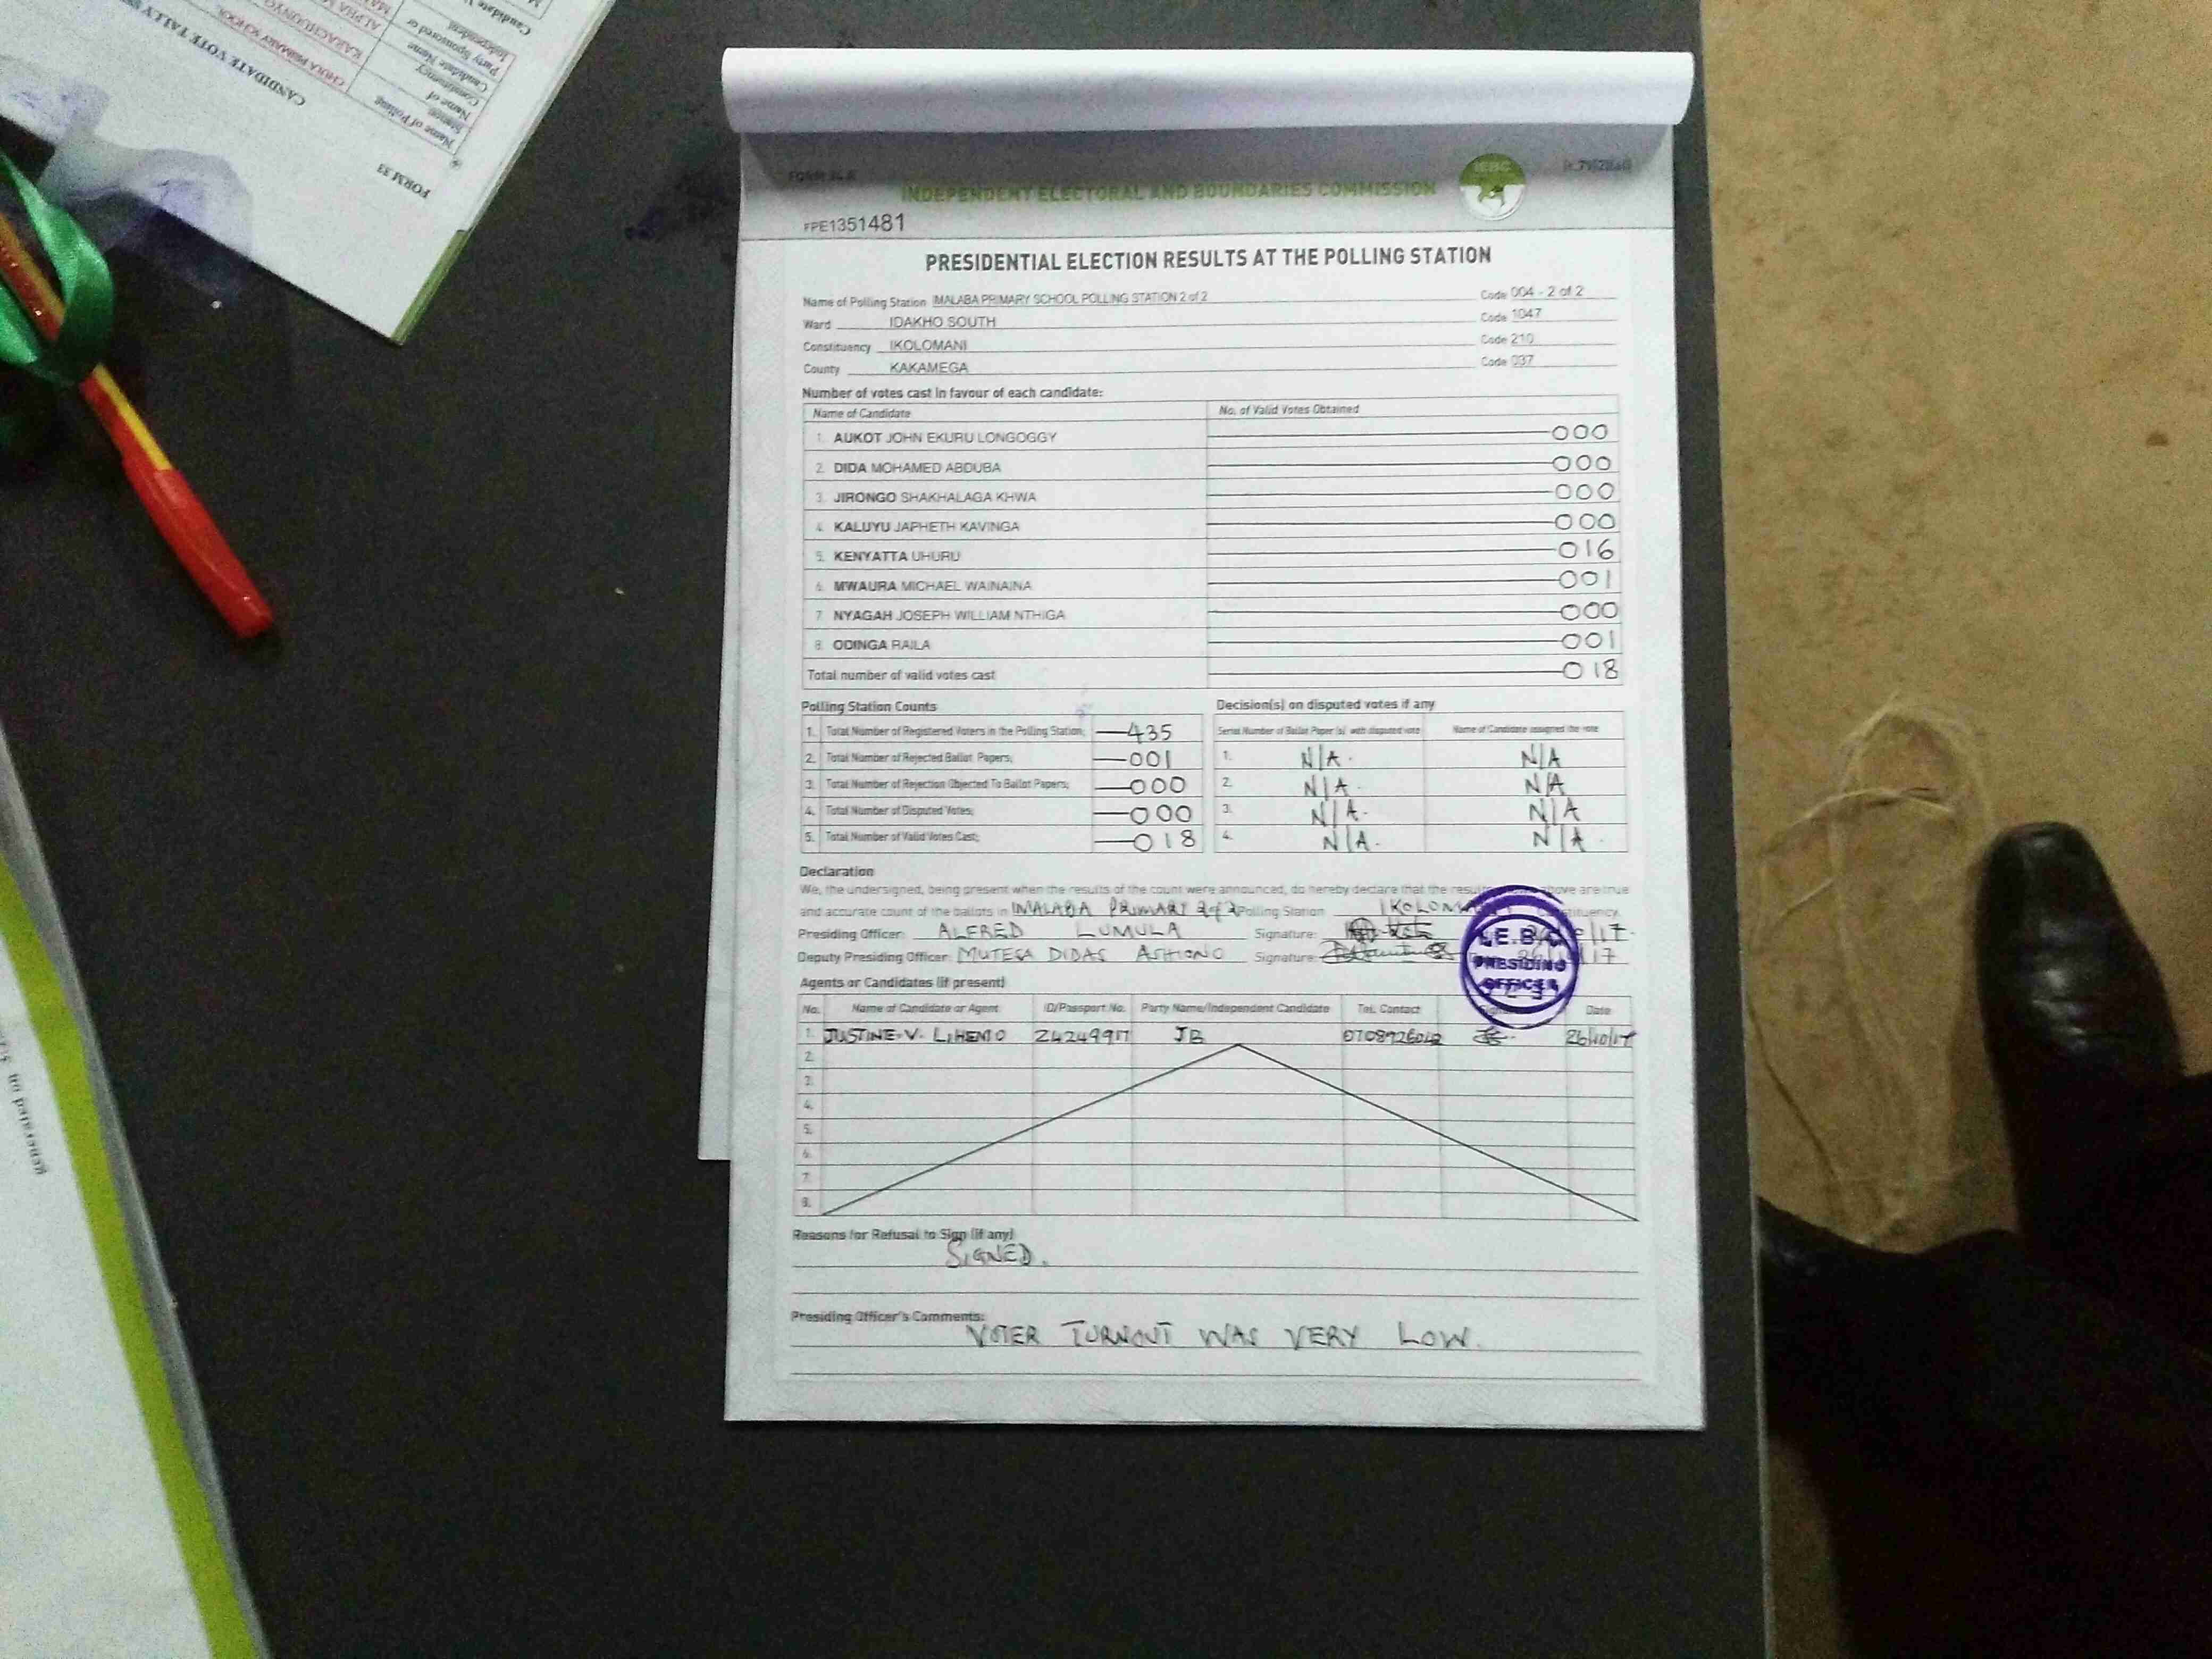 FORM 34 A
INDEPENDENT ELECTORAL AND BOUNDARIES COMMISSION
IEBC
FPE1351481
PRESIDENTIAL ELECTION RESULTS AT THE POLLING STATION
Name of Polling Station MALABA PRIMARY SCHOOL POLLING STATION 2 of 2 Code 004 - 2 of 2
Ward IDAKHO SOUTH Code 1047
Constituency IKOLOMANI Code 210
County KAKAMEGA Code 037
Number of votes cast in favour of each candidate:
Name of Candidate No. of Valid Votes Obtained
1. AUKOT JOHN EKURU LONGOGGY 000
2. DIDA MOHAMED ABDUBA 000
3. JIRONGO SHAKHALAGA KHWA 000
4. KALUYU JAPHETH KAVINGA 000
5. KENYATTA UHURU 016
6. MWAURA MICHAEL WAINAINA 001
7. NYAGAH JOSEPH WILLIAM NTHIGA 000
8. ODINGA RAILA 001
Total number of valid votes cast 018
Polling Station Counts
1. Total Number of Registered Voters in the Polling Station; 435
2. Total Number of Rejected Ballot Papers; 001
3. Total Number of Rejection Objected To Ballot Papers; 000
4. Total Number of Disputed Votes; 000
5. Total Number of Valid Votes Cast; 018
Decision(s) on disputed votes if any
Serial Number of Ballot Paper (s) with disputed vote Name of Candidate assigned the vote
1. N/A. N/A
2. N/A. N/A
3. N/A. N/A
4. N/A. N/A.
Declaration
We, the undersigned, being present when the results of the count were announced, do hereby declare that the results above are true
and accurate count of the ballots in MALABA PRIMARY 2 of 2 Polling Station IKOLOMANI Constituency.
Presiding Officer: ALFRED LUMULA Signature:
Deputy Presiding Officer: MUTESA DIDAS ASHIONO Signature:
I.E.B.C
PRESIDING
OFFICER
Agents or Candidates (if present)
No. Name of Candidate or Agent ID/Passport No. Party Name/Independent Candidate Tel. Contact Date
1. JUSTINE V. LIHEMO JB 26/10/17
2.
3.
4.
5.
6.
7.
8.
Reasons for Refusal to Sign (if any)
SIGNED.
Presiding Officer's Comments:
VOTER TURNOUT WAS VERY LOW.
FORM 33
CANDIDATE VOTE TALLY
Name of Polling Station: CHUKA PRIMARY SCHOOL
Name of Constituency
Candidate Name
Party Sponsored or Independent
generated on